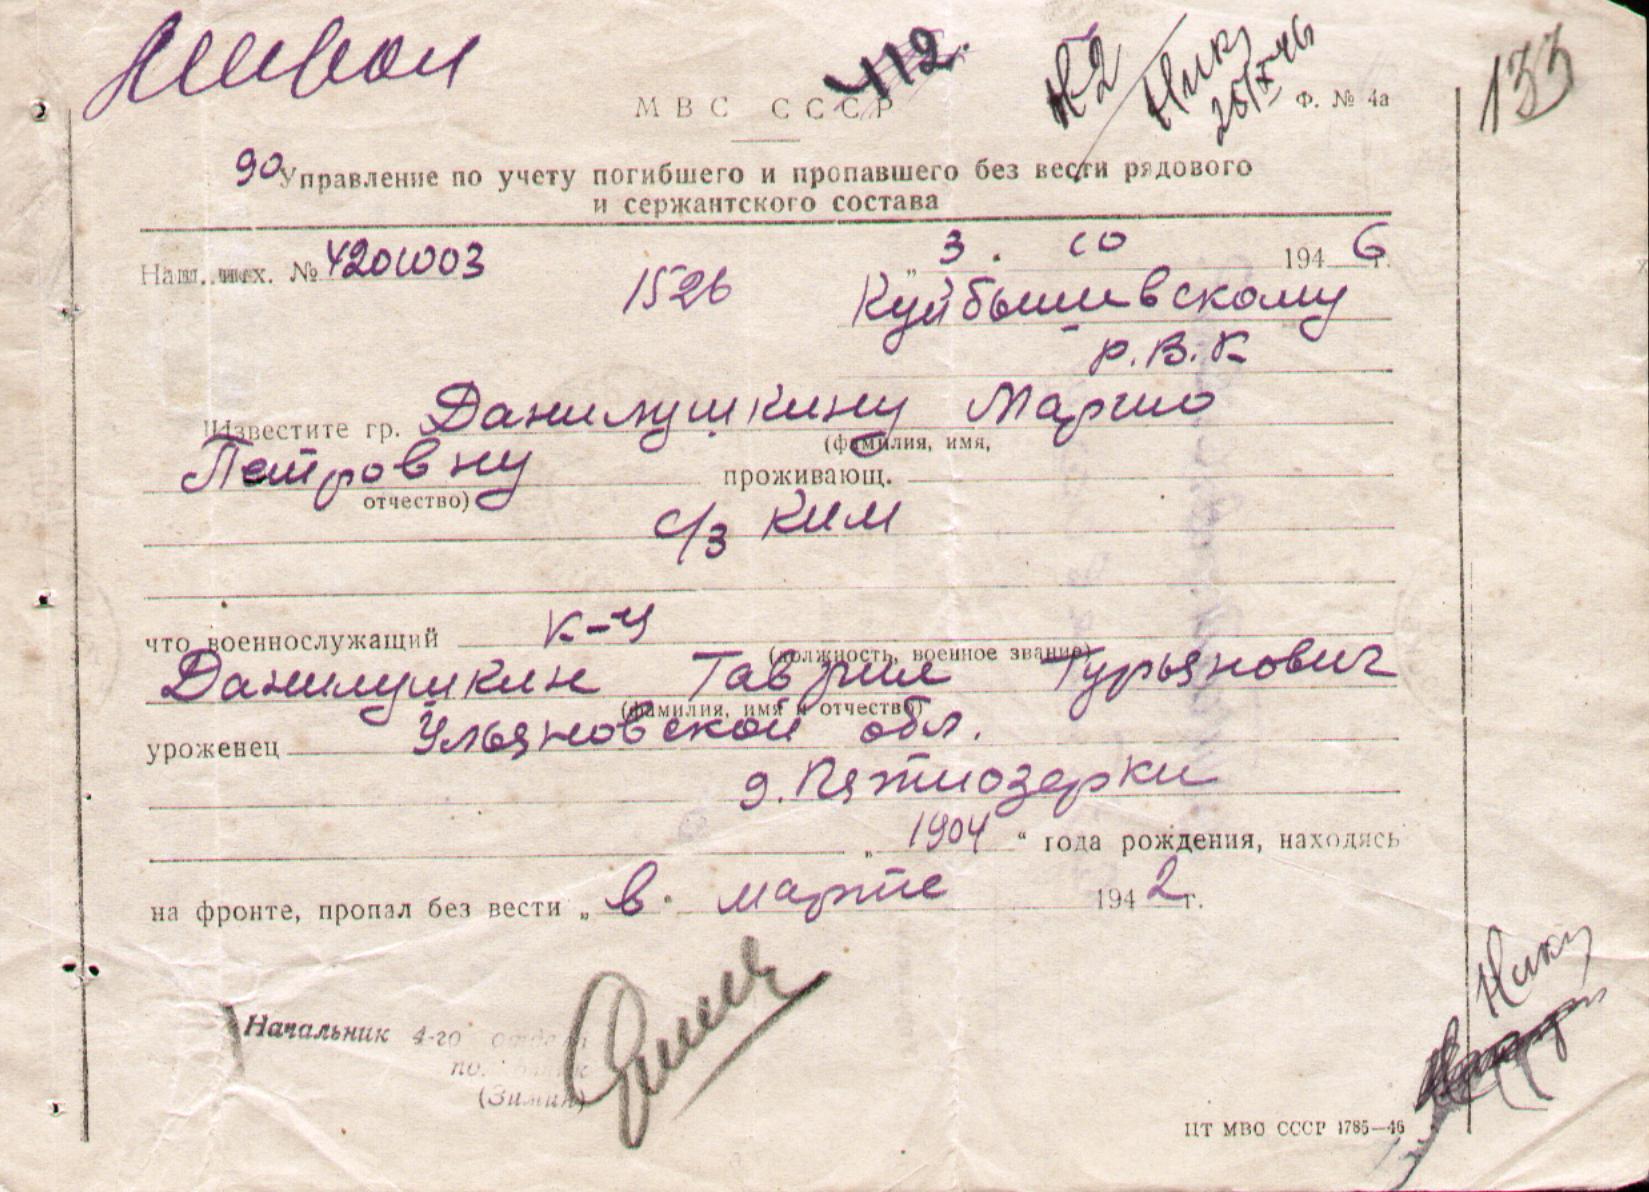 412.
№2
133
МВС СССР
Ф. № 4а
90
Управление по учету погибшего и пропавшего без вести рядового
и сержантского состава
Наш. исх. №
„3. 10 1946г.
1526
Куйбышевскому
р.В.К
Известите гр. Данилушкину Марию
(фамилия, имя,
Петровну проживающ.
отчество)
с/з Ким
что военнослужащий к-ц
(должность, военное звание)
Данилушкин Гаврил Гурьянович
(фамилия, имя и отчество)
уроженец Ульяновской обл.
д. Пятиозерки
„1904“ года рождения, находясь
на фронте, пропал без вести „в. марте 1942г.
Начальник 4-го отдела
(Зимин)
ЦТ МВО СССР 1785—46